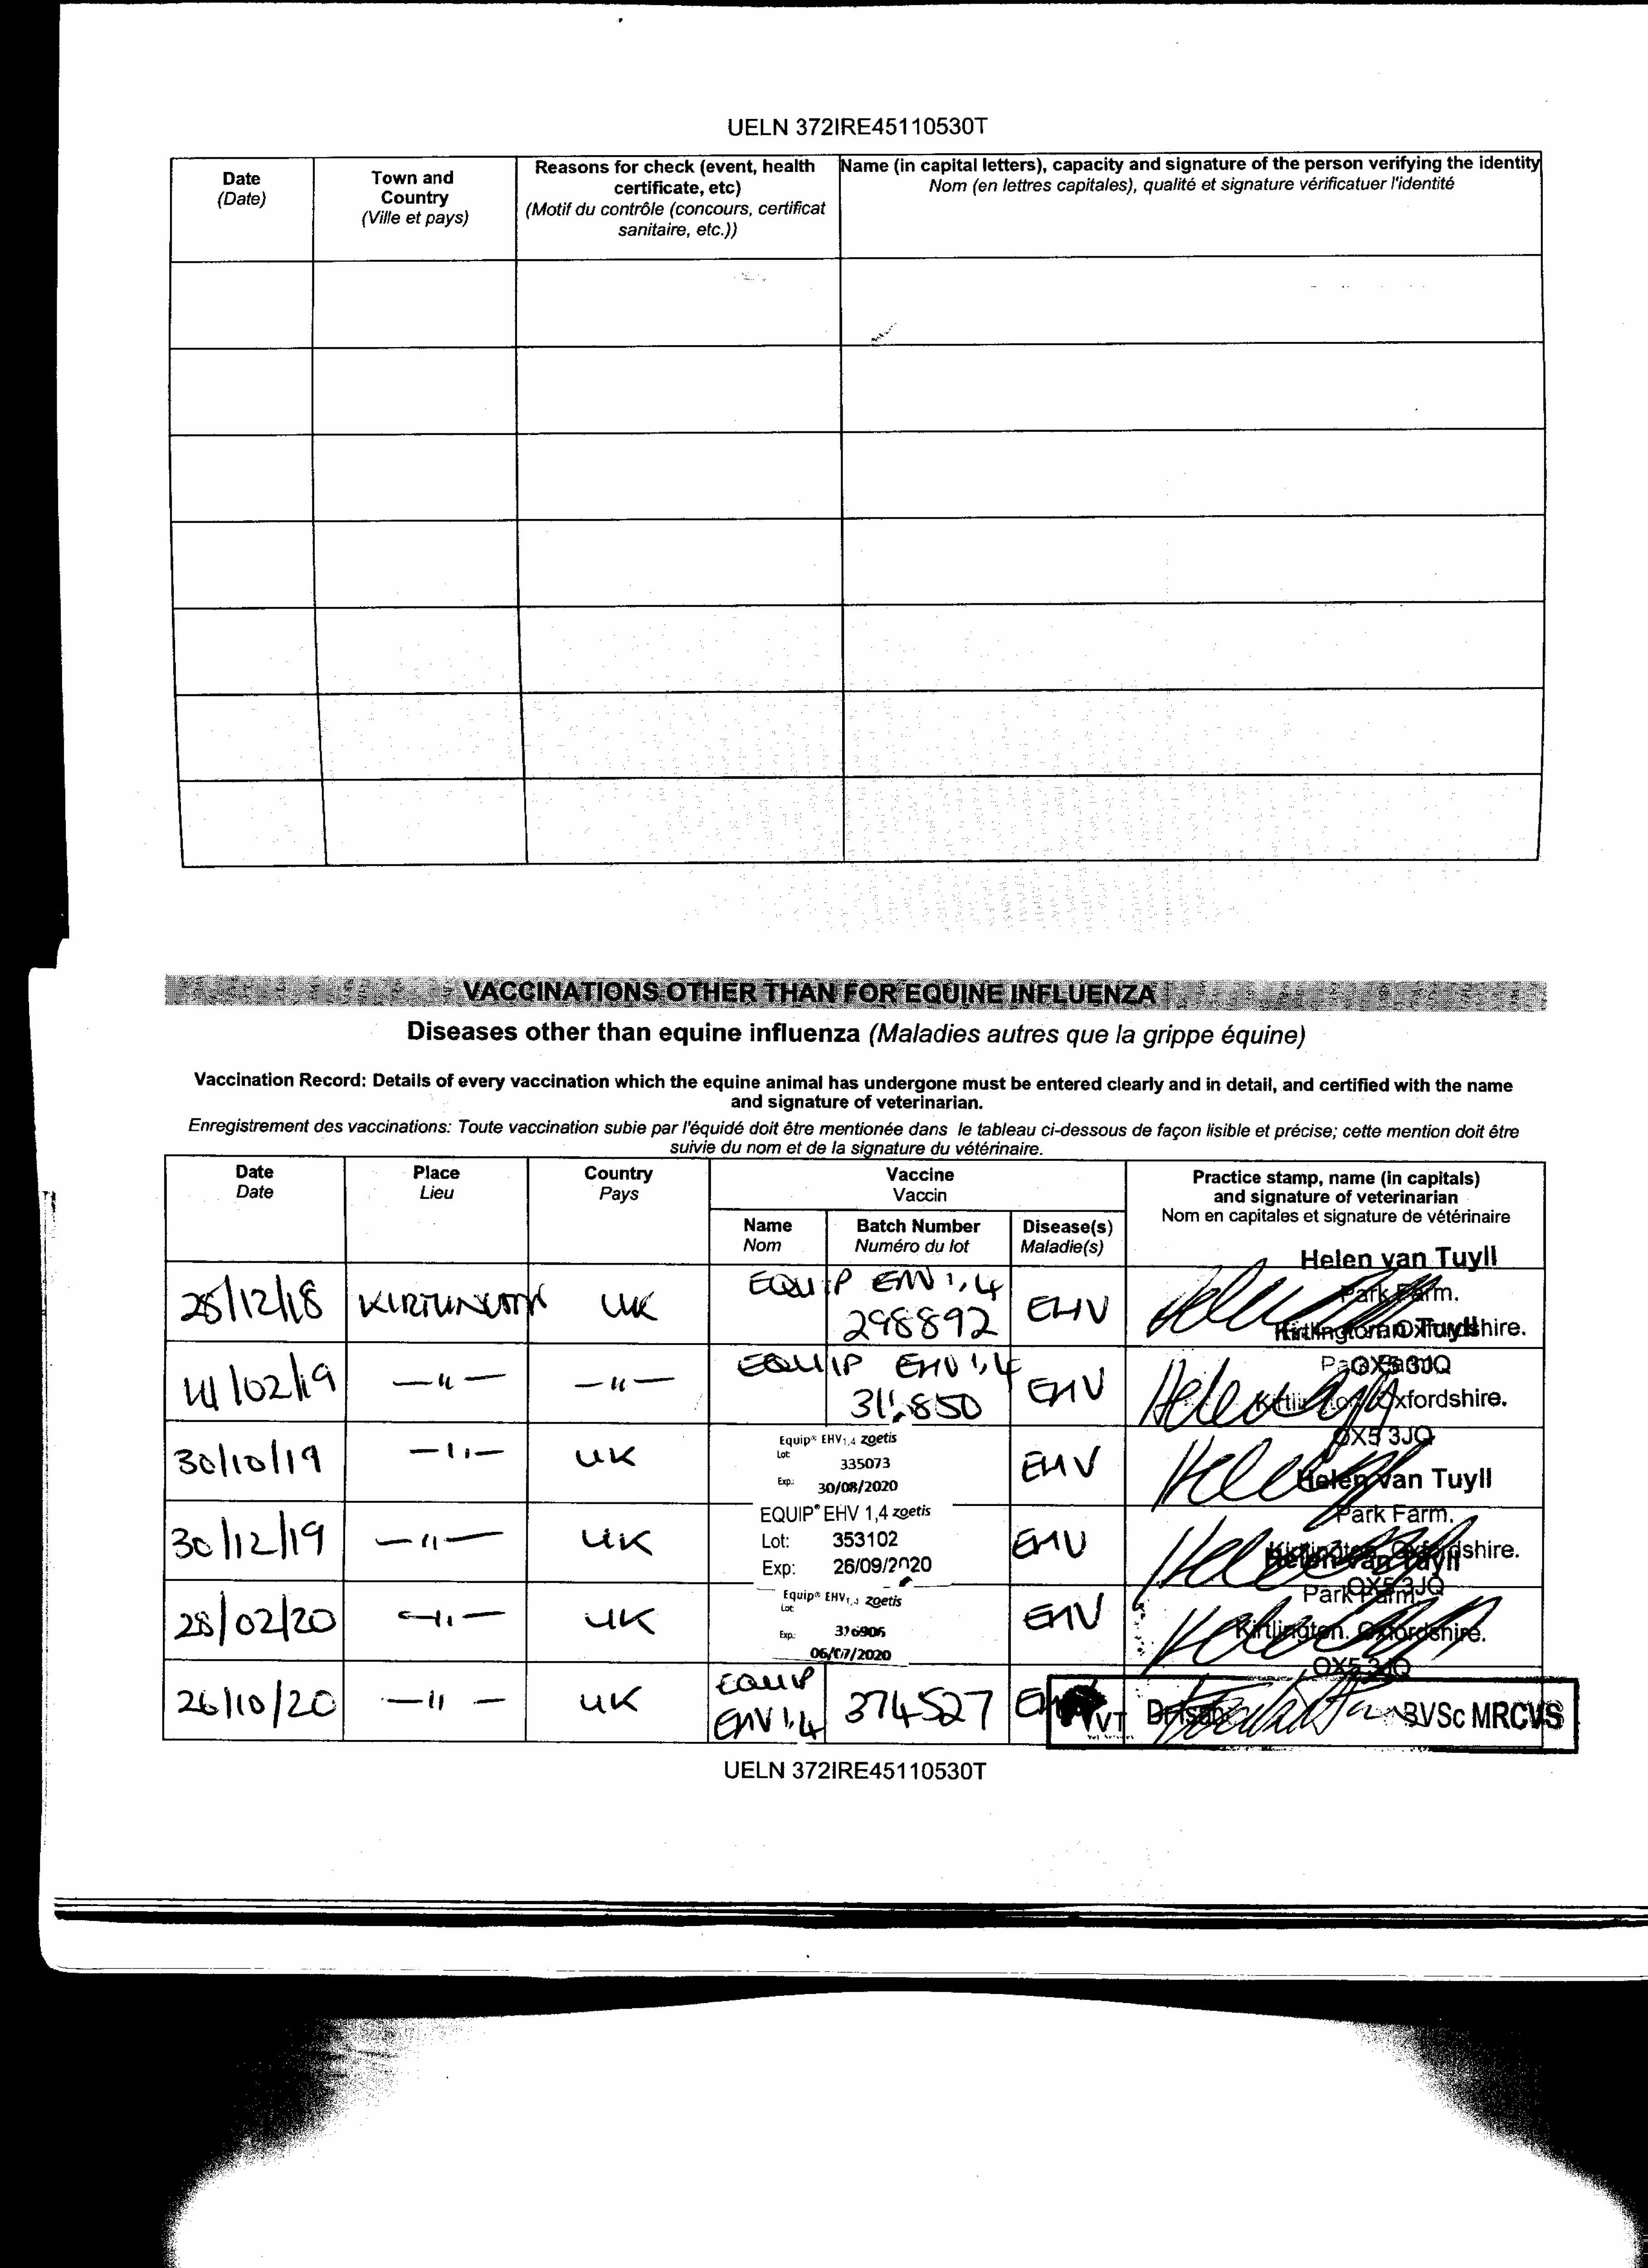 UELN 372IRE45110530T
Date
(Date)
Town and
Country
(Ville et pays)
Reasons for check (event, health
certificate, etc)
(Motif du contrôle (concours, certificat
sanitaire, etc.))
Name (in capital letters), capacity and signature of the person verifying the identity
Nom (en lettres capitales), qualité et signature vérificatuer l'identité
VACCINATIONS OTHER THAN FOR EQUINE INFLUENZA
Diseases other than equine influenza (Maladies autres que la grippe équine)
Vaccination Record: Details of every vaccination which the equine animal has undergone must be entered clearly and in detail, and certified with the name
and signature of veterinarian.
Enregistrement des vaccinations: Toute vaccination subie par l'équidé doit être mentionée dans le tableau ci-dessous de façon lisible et précise; cette mention doit être
suivie du nom et de la signature du vétérinaire.
Date
Date
Place
Lieu
Country
Pays
Vaccine
Vaccin
Name
Nom
Batch Number
Numéro du lot
Disease(s)
Maladie(s)
Practice stamp, name (in capitals)
and signature of veterinarian
Nom en capitales et signature de vétérinaire
/12/18 KIRTLINGTON UK EQUIP EHV 1,4
298892 EHV
Helen van Tuyll
Park Farm.
Kirtlington. Oxfordshire.
OX5 3JQ
/02/19 —"— —"— EQUIP EHV 1,4
311850 EHV
Oxfordshire.
OX5 3JQ
30/10/19 —"— UK
Equip® EHV1,4 zoetis
Lot: 335073
Exp.: 30/08/2020
EHV
Helen van Tuyll
Park Farm.
Kirtlington. Oxfordshire.
OX5 3JQ
30/12/19 —"— UK
EQUIP® EHV 1,4 zoetis
Lot: 353102
Exp: 26/09/2020
EHV
Helen van Tuyll
Park Farm.
Kirtlington. Oxfordshire.
OX5 3JQ
28/02/20 —"— UK
Equip® EHV1,4 zoetis
Lot: 316906
Exp.: 06/07/2020
EHV
26/10/20 —"— UK
EQUIP
EHV 1,4
374527
VT
BVSc MRCVS
UELN 372IRE45110530T